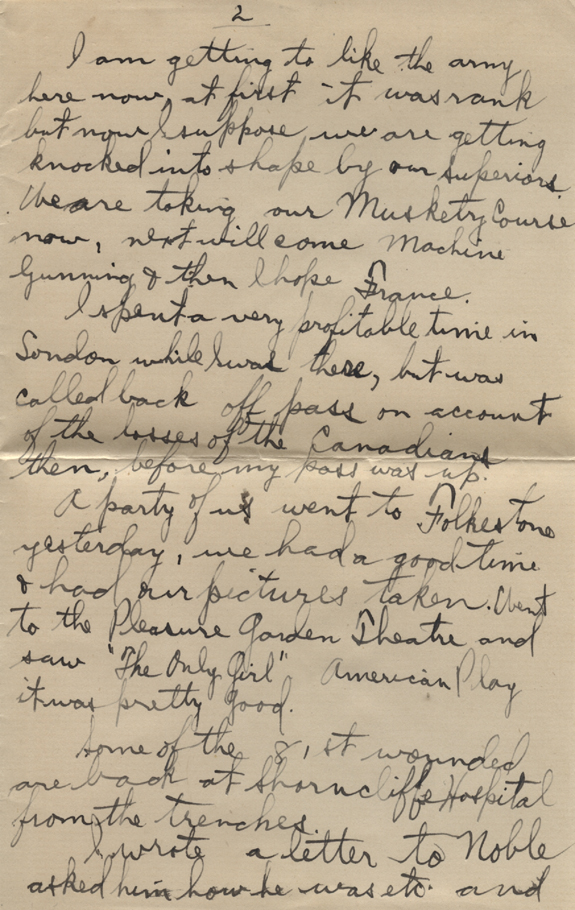 2
I am getting to like the army
here now, at first it was rank
but now I suppose we are getting
knocked into shape by our superiors.
We are taking our Musketry Course
now, next will come Machine
Gunning & then I hope France.
I spent a very profitable time in
London while I was there, but was
called back off pass on account
of the losses of the Canadians
then, before my pass was up.
A party of us went to Folkestone
yesterday, we had a good time
& had our pictures taken. Went
to the Pleasure Garden Theatre and
saw "The Only Girl" American Play
it was pretty good.
Some of the 81st wounded
are back at Shorncliffe Hospital
from the trenches.
I wrote a letter to Noble
asked him how he was etc. and